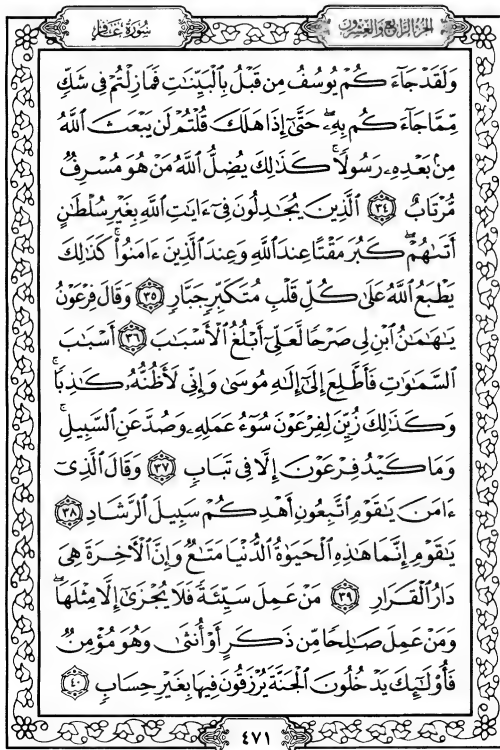 الجُزْءُ الرَّابِعُ وَالعِشْرُونَ
سُورَةُ غَافِرٍ
وَلَقَدْ جَآءَكُمْ يُوسُفُ مِن قَبْلُ بِالْبَيِّنَٰتِ فَمَا زِلْتُمْ فِى شَكٍّ
مِّمَّا جَآءَكُم بِهِۦ ۖ حَتَّىٰٓ إِذَا هَلَكَ قُلْتُمْ لَن يَبْعَثَ ٱللَّهُ
مِنۢ بَعْدِهِۦ رَسُولًا ۚ كَذَٰلِكَ يُضِلُّ ٱللَّهُ مَنْ هُوَ مُسْرِفٌ
مُّرْتَابٌ ٣٤ ٱلَّذِينَ يُجَٰدِلُونَ فِىٓ ءَايَٰتِ ٱللَّهِ بِغَيْرِ سُلْطَٰنٍ
أَتَىٰهُمْ ۖ كَبُرَ مَقْتًا عِندَ ٱللَّهِ وَعِندَ ٱلَّذِينَ ءَامَنُوا۟ ۚ كَذَٰلِكَ
يَطْبَعُ ٱللَّهُ عَلَىٰ كُلِّ قَلْبِ مُتَكَبِّرٍ جَبَّارٍ ٣٥ وَقَالَ فِرْعَوْنُ
يَٰهَٰمَٰنُ ٱبْنِ لِى صَرْحًا لَّعَلِّىٓ أَبْلُغُ ٱلْأَسْبَٰبَ ٣٦ أَسْبَٰبَ
ٱلسَّمَٰوَٰتِ فَأَطَّلِعَ إِلَىٰٓ إِلَٰهِ مُوسَىٰ وَإِنِّى لَأَظُنُّهُۥ كَٰذِبًا ۚ
وَكَذَٰلِكَ زُيِّنَ لِفِرْعَوْنَ سُوٓءُ عَمَلِهِۦ وَصُدَّ عَنِ ٱلسَّبِيلِ ۚ
وَمَا كَيْدُ فِرْعَوْنَ إِلَّا فِى تَبَابٍ ٣٧ وَقَالَ ٱلَّذِىٓ
ءَامَنَ يَٰقَوْمِ ٱتَّبِعُونِ أَهْدِكُمْ سَبِيلَ ٱلرَّشَادِ ٣٨
يَٰقَوْمِ إِنَّمَا هَٰذِهِ ٱلْحَيَوٰةُ ٱلدُّنْيَا مَتَٰعٌ وَإِنَّ ٱلْءَاخِرَةَ هِىَ
دَارُ ٱلْقَرَارِ ٣٩ مَنْ عَمِلَ سَيِّئَةً فَلَا يُجْزَىٰٓ إِلَّا مِثْلَهَا ۖ
وَمَنْ عَمِلَ صَٰلِحًا مِّن ذَكَرٍ أَوْ أُنثَىٰ وَهُوَ مُؤْمِنٌ
فَأُو۟لَٰٓئِكَ يَدْخُلُونَ ٱلْجَنَّةَ يُرْزَقُونَ فِيهَا بِغَيْرِ حِسَابٍ ٤٠
٤٧١